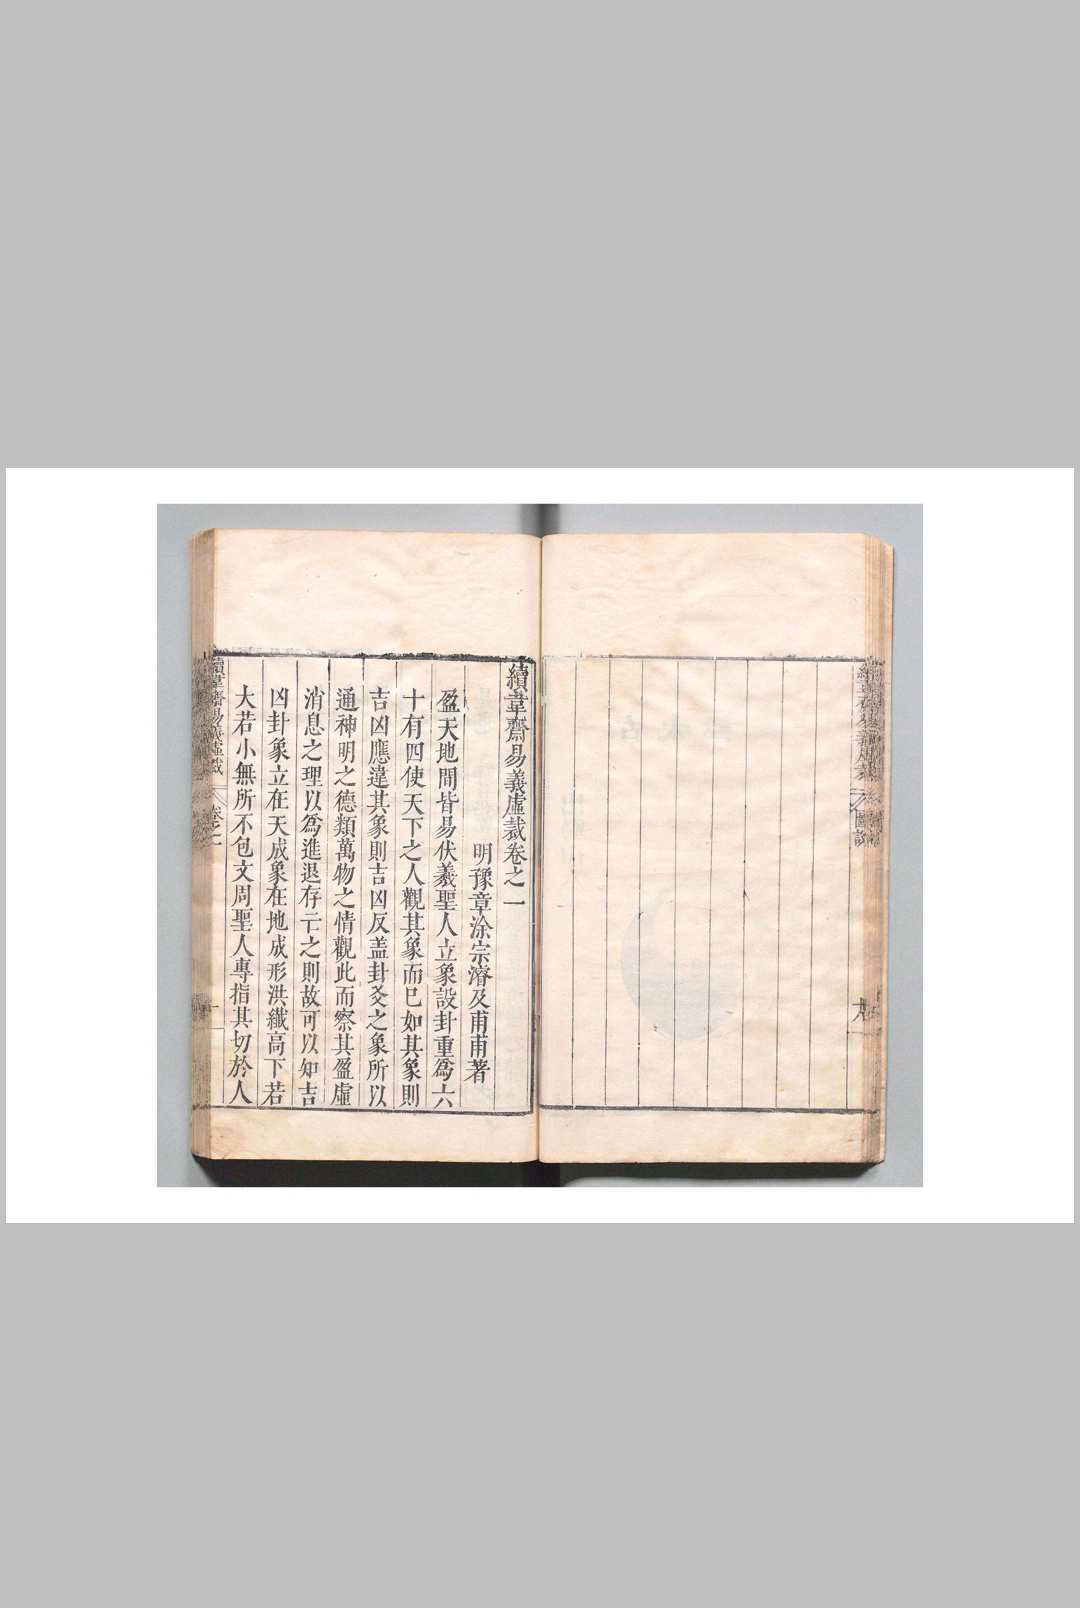 續韋齋易義虛裁卷之一
明豫章涂宗濬及甫甫著
盈天地間皆易伏羲聖人立象設卦重爲六
十有四使天下之人觀其象而巳如其象則
吉凶應違其象則吉凶反盖卦爻之象所以
通神明之德類萬物之情觀此而察其盈虛
消息之理以爲進退存亡之則故可以知吉
凶卦象立在天成象在地成形洪纖高下若
大若小無所不包文周聖人專指其切於人
續韋齋易義虛裁
卷之一